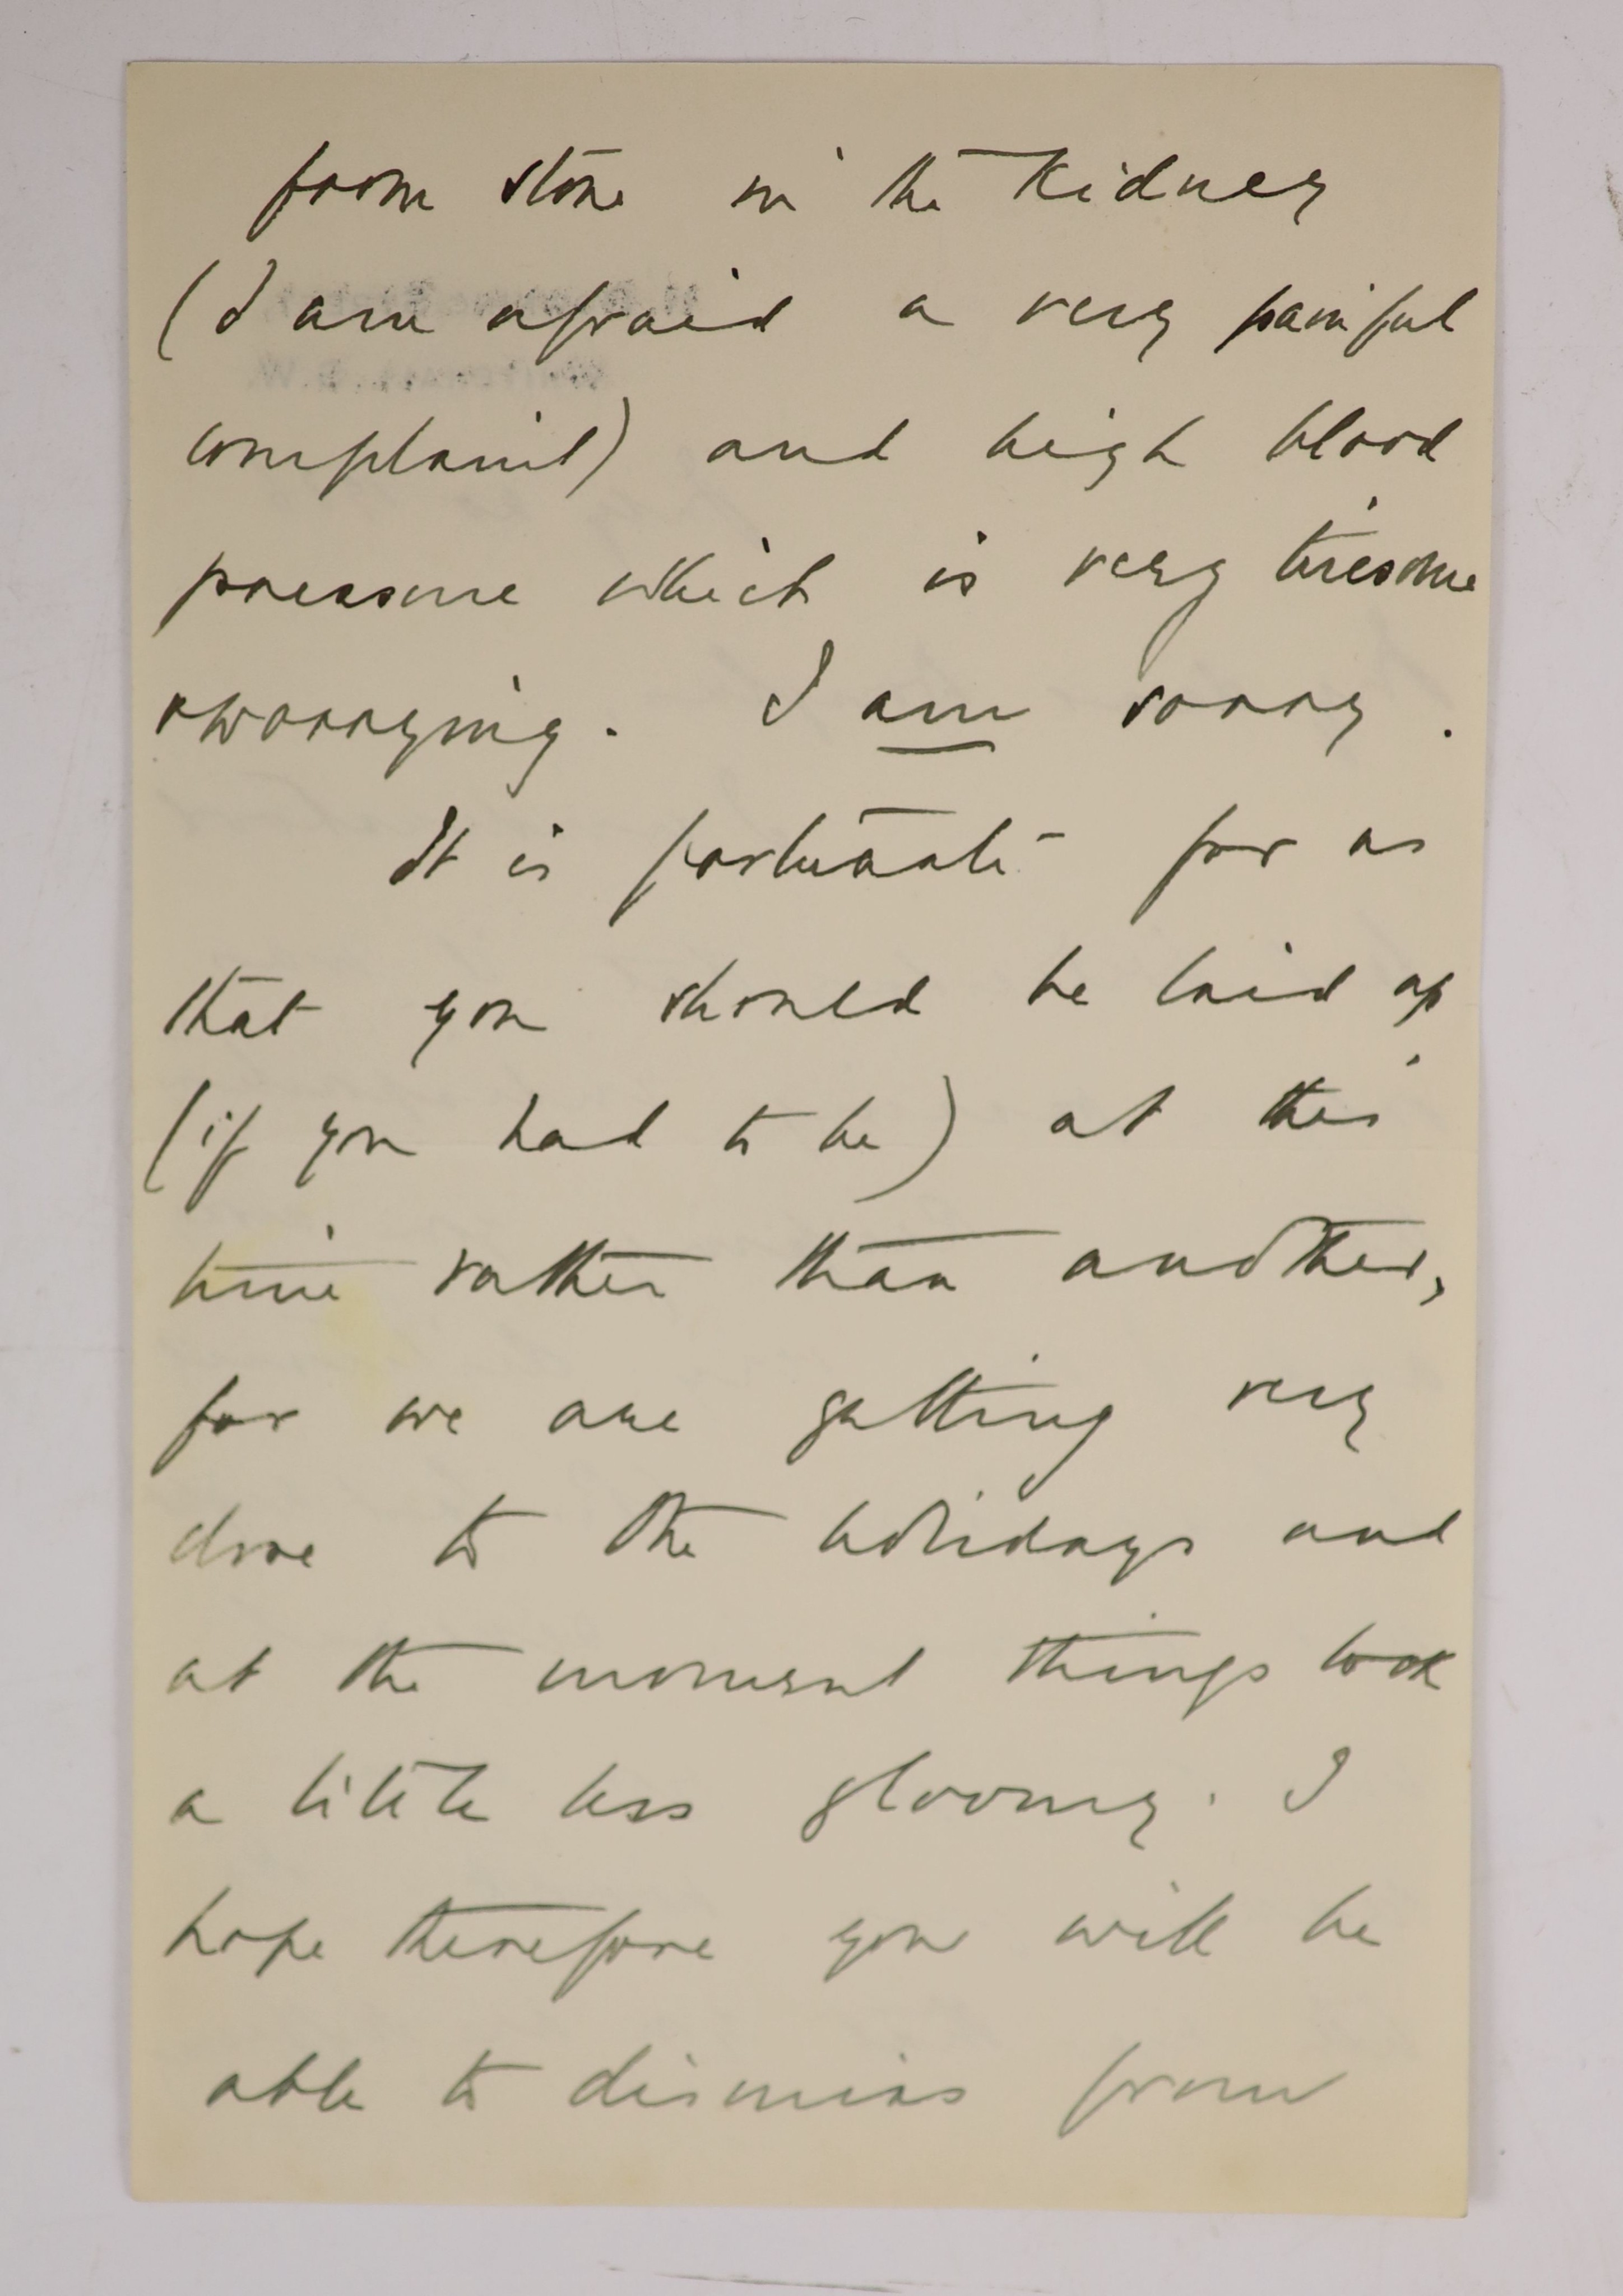 from stone in the kidney
(I am afraid a very painful
complaint) and high blood
pressure which is very tiresome
& worrying. I am sorry.
It is fortunate for us
that you should be laid up
(if you had to be) at this
time rather than another,
for we are getting very
close to the holidays and
at the moment things look
a little less gloomy. I
hope therefore you will be
able to dismiss from